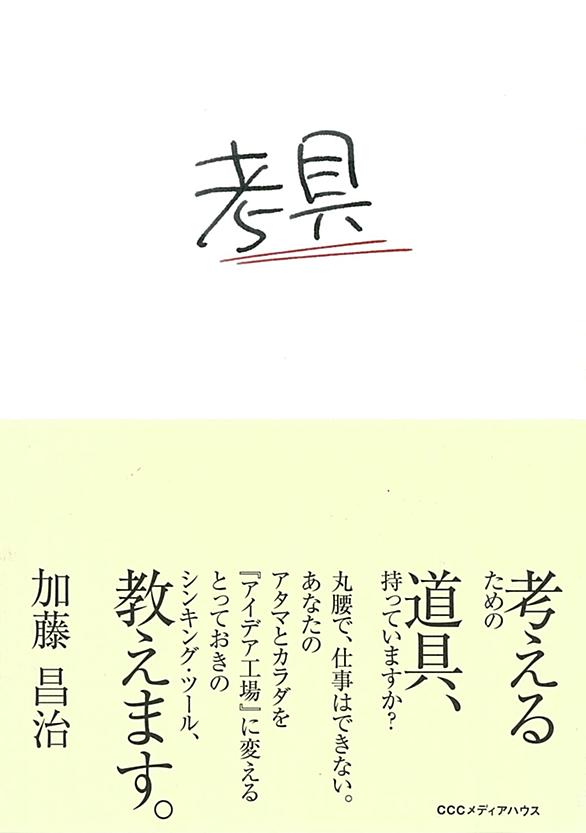 考具
考える
ための
道具、
持っていますか?
丸腰で、仕事はできない。
あなたの
アタマとカラダを
『アイデア工場』に変える
とっておきの
シンキング・ツール、
教えます。
加藤 昌治
CCCメディアハウス